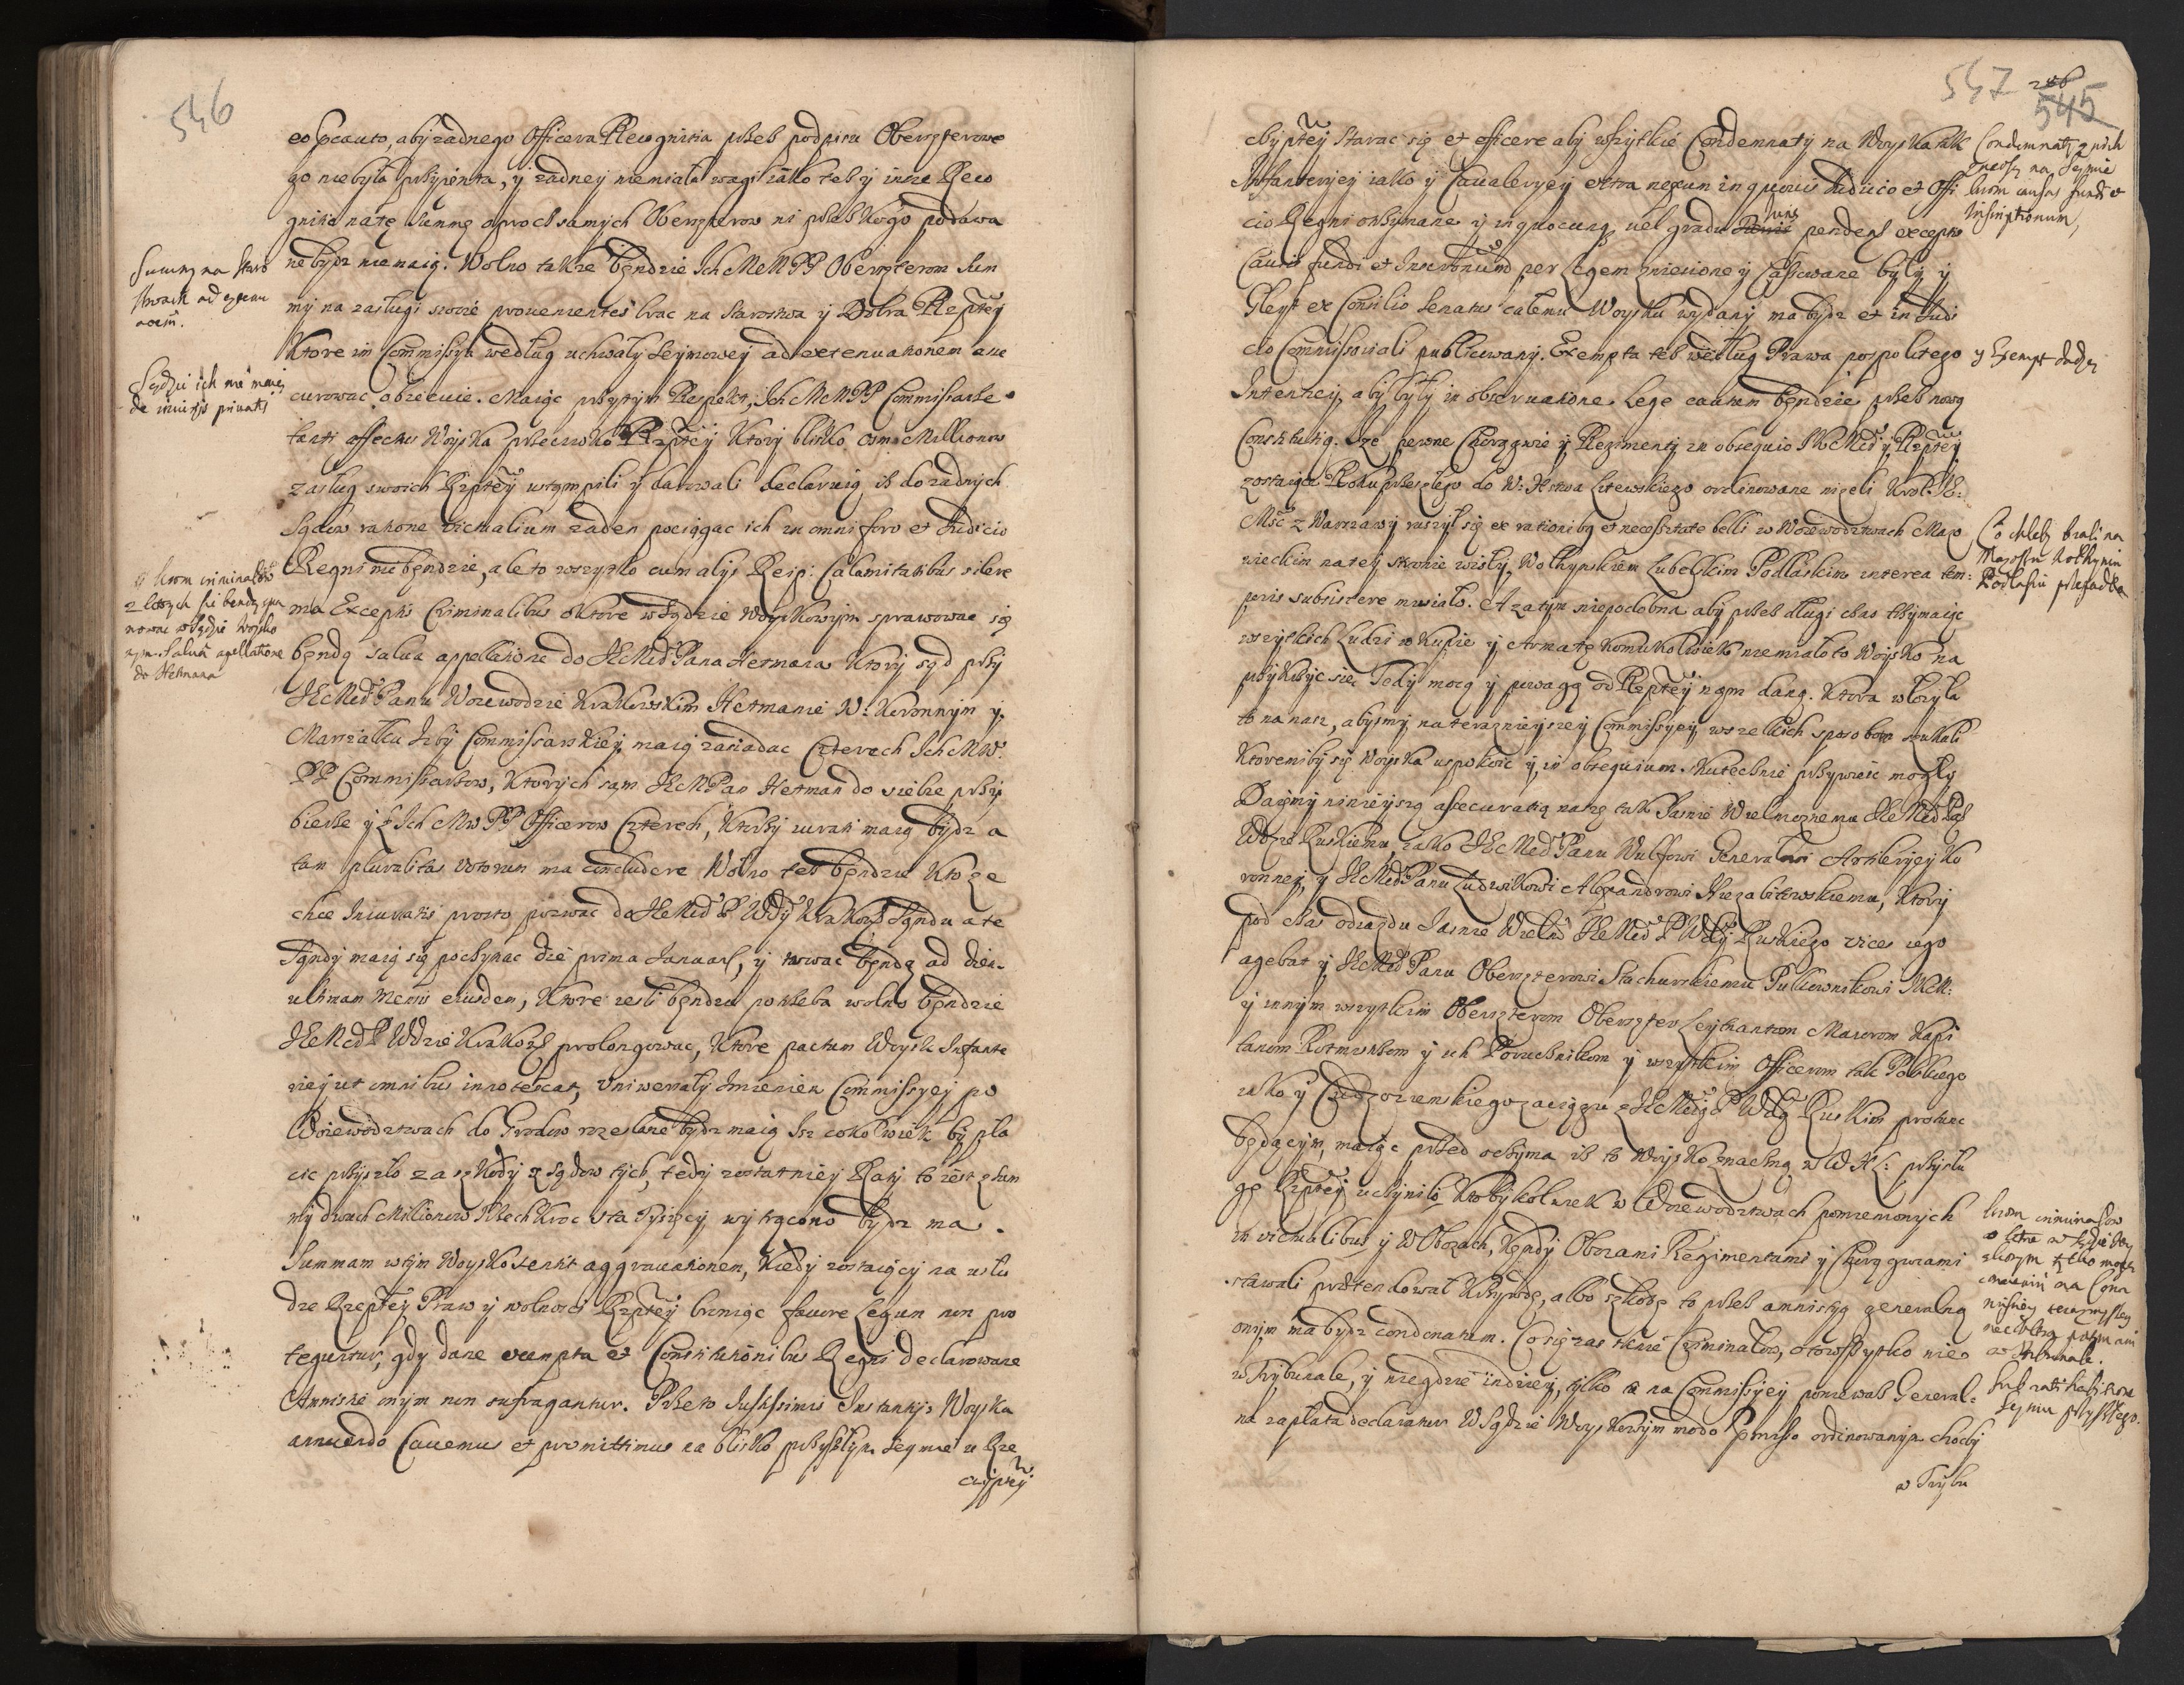 546
eo Ipcauto, aby zadnego Officera Recognitia przeb podpisu Oberszterowe
go niebyła przyięta, y żadney niemiała wagi iáko teb y insze Reco
gnitie natę Summę oproch samych Oberszterow ni przeb kogo podawa
ne bydz niemaią. Wolno takze będzie Ich MćM PP Oberszterom Sum
my na zasługi swoie prouenientes brac na Starostwa y Dobra Rzptey
Ktore im Commissya według uchwały Seymowey ad extenuationem asse
curowac obiecuie. Maiąc przytym Respekt, Ich McM PP Commissarze
tanti affectus Woyska przeciwko Rzptey Ktory blisko osmi Millionow
zasług swoich Rzptey ustąmpili y darowali declaruią ib do zadnych
Sądow ratione victualium zaden pociągac ich in omni foro et Iudicio
Regni nie będzie, ale to wszystko cum alijs Reip: Calamitatibus silere
ma Exceptis Criminalibus oktore w Sądzie Woyskowym sprawowac się
będą salua appellatione do JEMćD Pana Hetmana Ktory sąd przy
JEMćD Panu Woiewodzie Krakowskim Hetmanie W: Koronnym y
Marszałku Izby Commissarskiey maią zasiadac Czterech Ich MW.
PP Commissarzow, Ktorych sąm JEMPan Hetman do siebie przy
bierze y z Ich MW PP Officerow Czterech, Ktorzy iurati maią bydz a
tam pluralitas votorum ma concludere Wolno teb będzie Kto ze
chce Iniuratis prosto pozwać do JEMćD P Wdy Krakows Sąndu a te
Sąndy maią się poczynac die prima Januarij, y trwac będą ad diem
ultimam Mensis eiusdem, Ktore iesli będzie potrzeba wolno będzie
JEMćD P Wdzie Krakows prolongowac, Ktore pactum Woysk Infante
riey ut omnibus innotescat, Vniwersały Imieniem Commissyey po
Woiewodztwach do Grodow rozesłane bydz maią Isz cokolwiek by pła
cic przyszło za szkody z Sądow tych, tedy zostatniey Raty to iest z Sum
my dwoch Millionow Trzechkroc Sta Tysięcy wytrącono bydz ma.
Summam wtym Woysko sentit aggrauationem, Kiedy zostaiący na usłu
dze Rzeptey Praw y wolnosci Rzptey broniąc fauore Legum non pro
teguntur, gdy dane exempta et Constitutionibus Regni declarowane
Amnistie onym non sufragantur. Przeto Iustissimis Instantijs Woyska
annuendo Cauemus et promittimus na blisko przyszłym Seymie u Rze
czyptey
Summy na Staro
stwach ad extenu
aoem.
Sądzic ich nie maią
de iniurijs privatis
o krom criminałow
z ktorych się bendą spra
wowac w Sądzie Woysko
wym. Salua apellatione
do Hetmana
547
246
545
czyptey starac się et efficere aby wszytkie Condemnaty na Woyska tak
Infanteryey iako y Caualeryey extra nexum in quouis Iudicio et Offi
cio Regni otrzymane y in quocunq uel gradu Iuris pendens exceptis
Causis fundi et Inscriptionum per Legem zniesione y Cassowane były y
Gleyt ex Consilio Senatus całemu Woysku wydany ma bydz et in Iudi
cio Commissoriali publicowany. Exempta teb według Prawa pospolitego
Intentiey, aby były in obseruatione Lege cautum będzie przeb nową
Constitutią. Ize pewne Chorągwie y Regimenty in obsequio JKMćD y Rzptey
zostaiąc Roku przeszłego do W: Xstwa Litewskiego ordinowane nizeli Krol. Je:
Mść z Warszawy ruszył się ex rationibq et necessitate belli w Woiewodztwach Mazo
wieckim na tey stronie wisły, Wołhynskiem Lubelskim Podlaskim interea tem:
poris subsistere musiało. A zatym niepodobna aby przeb długi czas trzymaiąc
wszytkich Ludzi w kupie y Armatę komukolwiek niemiało to Woysko na
przykrzyc się. Tedy mocą y powagą od Rzptey nąm daną. Ktora włozyła
to na nasz, abysmy na terazniejszey Commissyey wszelkich sposobow szukali
Ktoremiby się Woyska uspokoic y in obsequium skutecznie przywieść mogły
Daiemy ninieyszą assecuratią naszę tak Jasnie Wielmoznemu JEMćD Pa
Wdzie Ruskiemu, iako JEMćD Panu Wulfowi Generałowi Artileryey Ko
ronney, y JEMćD Panu Ludwikowi Alexandrowi Niezabitowskiemu, Ktory
pod czas odiazdu Jasnie Wielm JEMćD P Wdy Ruskiego vices iego
agebat y JEMćD Panu Oberszterowi Stachurskiemu Pułkownikowi JKM:
y innym wszystkim Oberszterom Oberszter Leythantom Maiorom Kapi
tanom Rotmistrzom y ich Porucznikom y wszytkim Officerom tak Polskiego
iako y Cudzoziemskiego zaciągu z JEMćią P Wdą Ruskim protunc
będącym, maiąc przed oczyma ib to Woysko znaczną w W X L: przysłu
gę Rzptey uczyniło Ktobykolwiek w Woiewodztwach pomienionych
in victualibus y W Obozach, kędy Obozami Regimentami y Chorągwiami
stawali prætendował Krzywdę, albo szkodę to przeb amnistyą generalną
onym ma bydz condonatum. Co się zas tknie Criminałow, o to wszystko nie
w Trybunale, y niegdzie indziey, tylko na Commissyey poniewab General:
na zapłata declaratur W Sądzie Woyskowym modo Præmisso ordinowanym choćby
w Trybu
Condemnaty z nich
znieść na Seymie
krom causas fundi et
Inscriptionum,
y Exempt dadzą
Co chleb brali na
Mazoszu Wołhyniu
Podlasiu przepadło
krom criminałow
o ktore w Sądzie Woy
skowym tylko mogą
nie w Tribunale.
Sub ratihabitione
Seymu przyszłego.